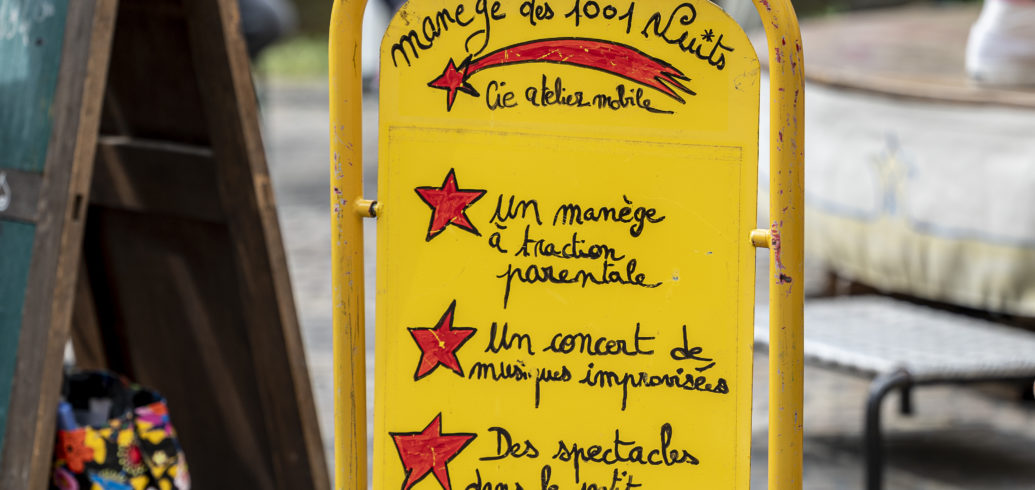 manège des 1001 Nuits
Cie atelier mobile
Un manège
à traction
parentale
Un concert de
musiques improvisées
Des spectacles
dans le petit